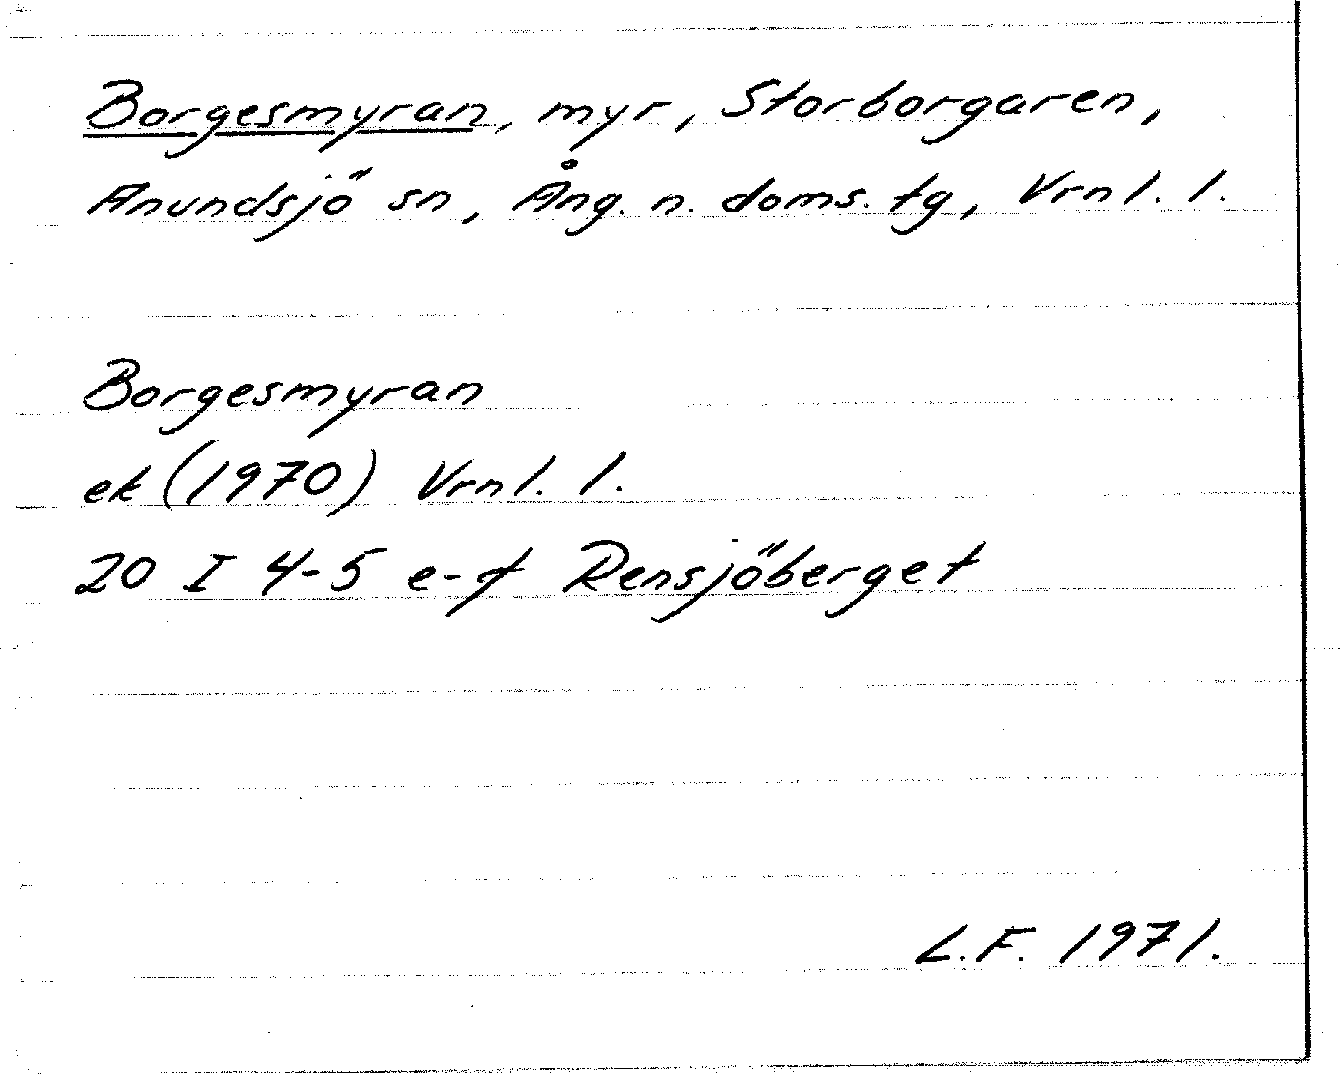 Borgesmyran, myr, Storborgaren,
Anundsjö sn, Ång. n. doms. tg, Vrnl. l.
Borgesmyran
ek (1970) Vrnl. l.
20 I 4-5 e-f Rensjöberget
L.F. 1971.